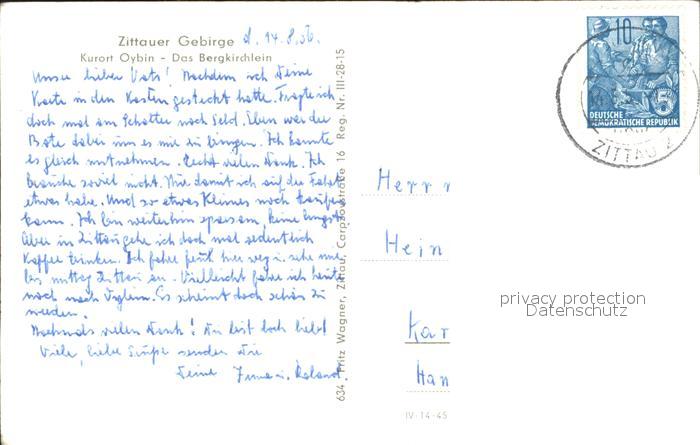 Zittauer Gebirge d. 14.8.56.
Kurort Oybin - Das Bergkirchlein
Unser lieber Vati! Nachdem ich Deine
Karte in den Kasten gesteckt hatte. Fragte ich
doch mal am Schalter nach Geld. Eben war der
Bote dabei um es mir zu bringen. Ich konnte
es gleich mitnehmen. Recht vielen Dank. Ich
brauche soviel nicht. Nur damit ich auf der Fahrt
etwas habe. Und so etwas Kleines noch kaufen
kann. Ich bin weiterhin sparsam, keine Angst.
Aber in Zittau gehe ich doch mal ordentlich
Kaffee trinken. Ich fahre früh hier weg u. sehe mir
bis mittag Zittau an. Vielleicht fahre ich heute
noch nach. Es scheint doch schön zu
werden.
Nochmals vielen Dank! Du bist doch lieb!
Viele, liebe Grüße senden Dir
Deine Irma u. Roland.
634 Fritz Wagner, Zittau, Carpzovstraße 16 Reg. Nr. III-28-15
10
5
DEUTSCHE
DEMOKRATISCHE REPUBLIK
ZITTAU 2
Herrn
Hein
Kar
Han
IV-14-45
privacy protection
Datenschutz